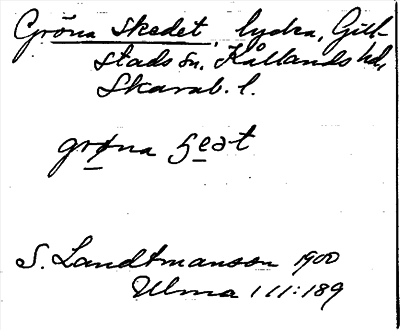 Gröna skedet, lycka, Gill-
stads sn. Kållands hd,
Skarab. l.
grøna ꜱeət
S. Landtmanson 1900
Ulma 111:189